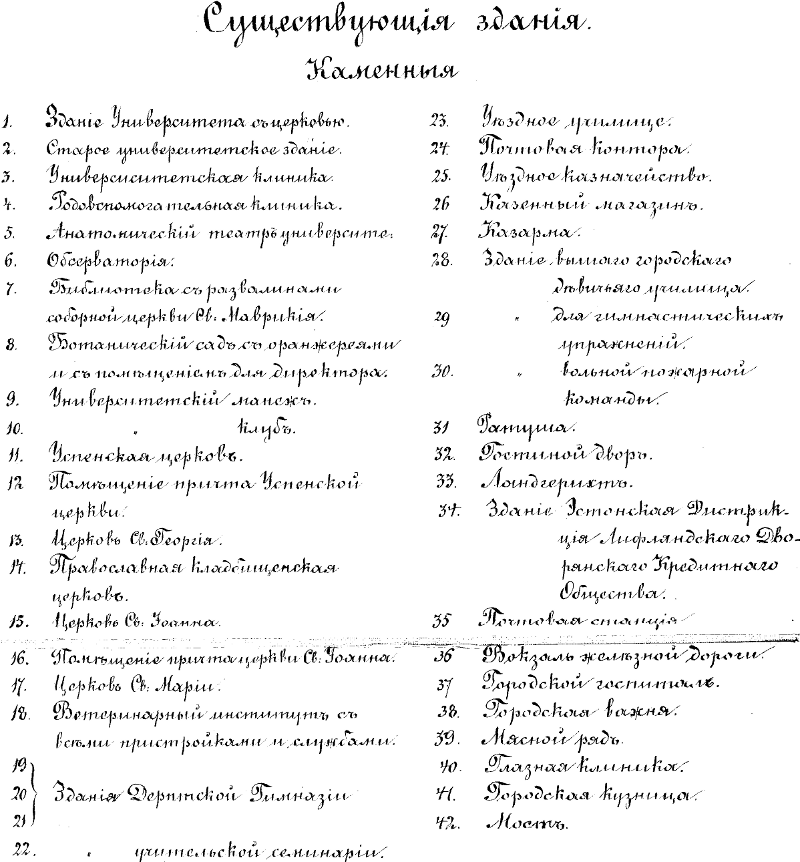 Существующія зданія.
Каменныя
1. Зданіе Университета съ церковью.
2. Старое университетское зданіе.
3. Университетская клиника.
4. Родовспомогательная клиника.
5. Анатомическій театръ университе:
6. Обсерваторія.
7. Библіотека съ развалинами
соборной церкви Св: Маврикія.
8. Ботаническій садъ съ оранжереями
и съ помѣщеніемъ для директора.
9. Университетскій манежъ.
10. " клубъ.
11. Успенская церковь.
12 Помѣщеніе причта Успенской
церкви.
13. Церковь Св. Георгія.
14. Православная кладбищенская
церковь.
15. Церковь Св: Іоанна.
16. Помѣщеніе причта церкви Св: Іоанна.
17. Церковь Св: Маріи.
18. Ветеринарный институтъ съ
всѣми пристройками и службами.
19
20 } Зданія Дерптской Гимназіи
21
22. " учительской семинаріи.
23. Уѣздное училище.
24. Почтовая контора.
25. Уѣздное казначейство.
26 Казенный магазинъ.
27. Казарма.
28. Зданіе высшаго городскаго
дѣвичьяго училища.
29 " для гимнастическихъ
упражненій.
30. " вольной пожарной
команды.
31 Ратуша.
32. Гостиной дворъ.
33. Ландгерихтъ.
34. Зданіе Эстонская Дистрик-
ція Лифляндскаго Дво-
рянскаго Кредитнаго
Общества.
35 Почтовая станція
36 Вокзалъ желѣзной дороги.
37 Городской госпиталь.
38. Городская важня.
39. Мясной рядъ.
40. Глазная клиника.
41. Городская кузница.
42. Мостъ.